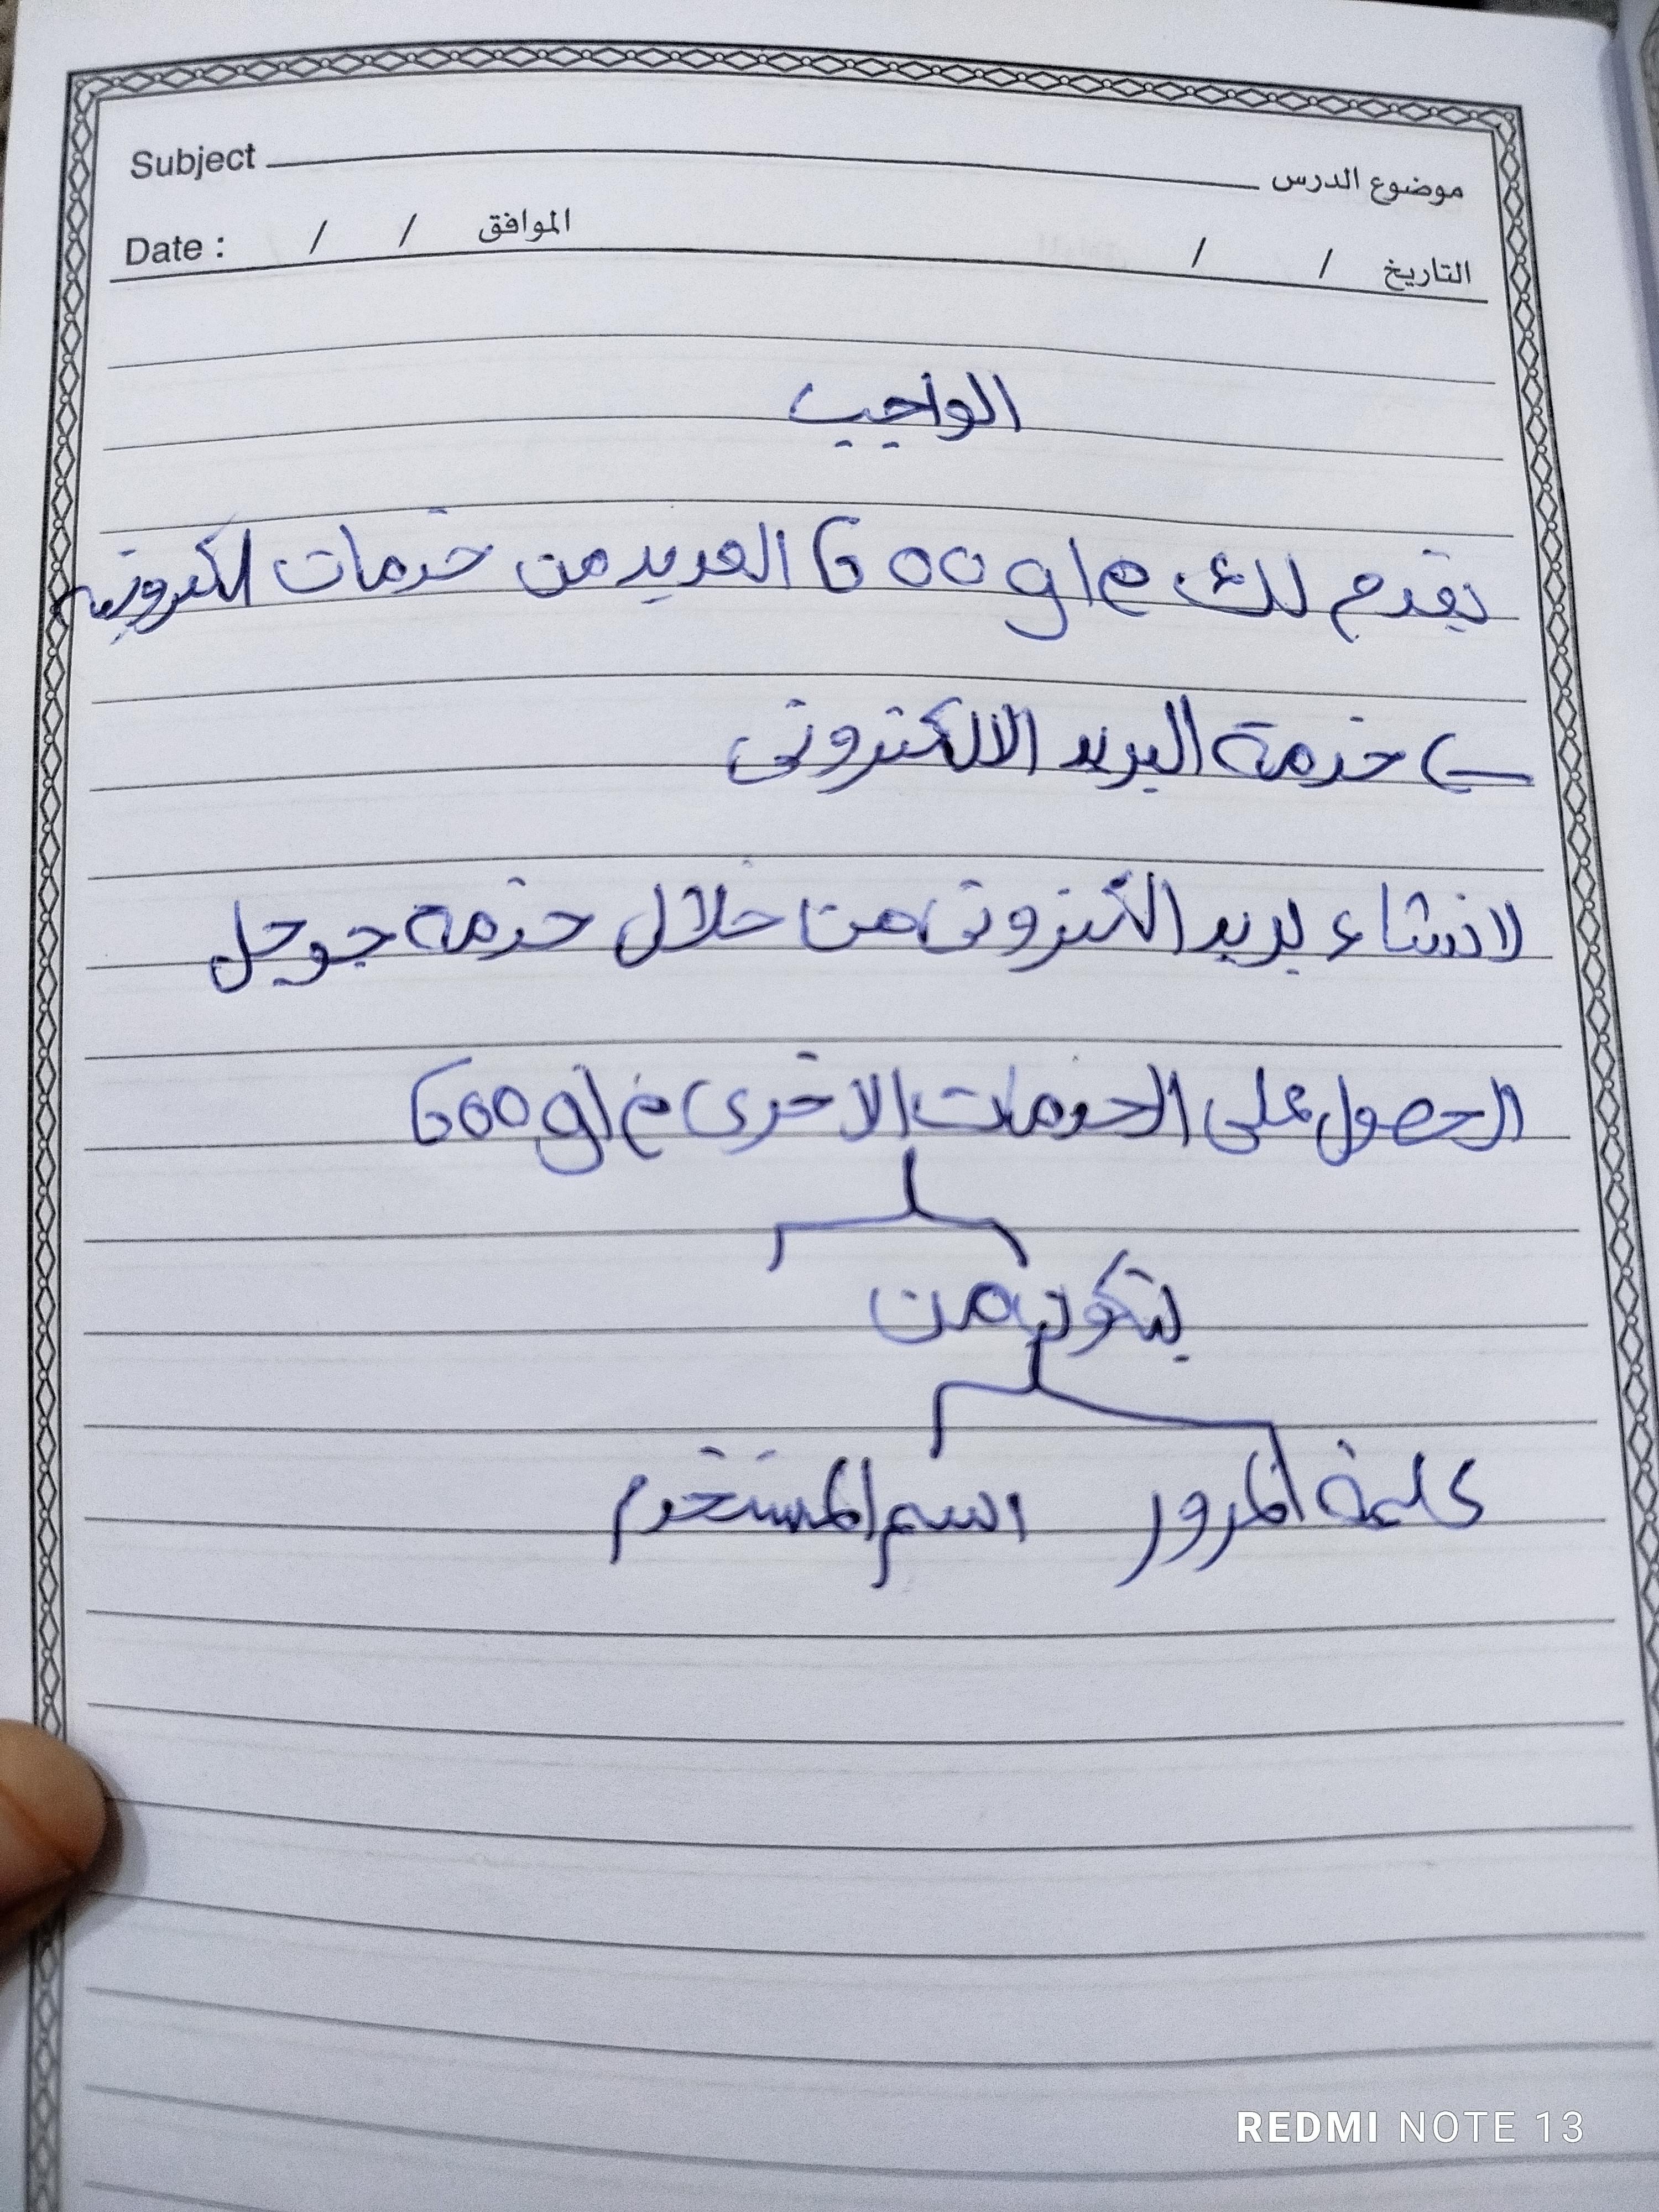 Subject موضوع الدرس
Date : / / الموافق / / التاريخ
الواجب
يقدم لك Google العديد من خدمات الكترونيه
خدمة البريد الالكترونى
لانشاء بريد الكترونى من خلال خدمة جوجل
الحصول على الخدمات الاخرى Google
يتكون من
كلمة المرور اسم المستخدم
REDMI NOTE 13